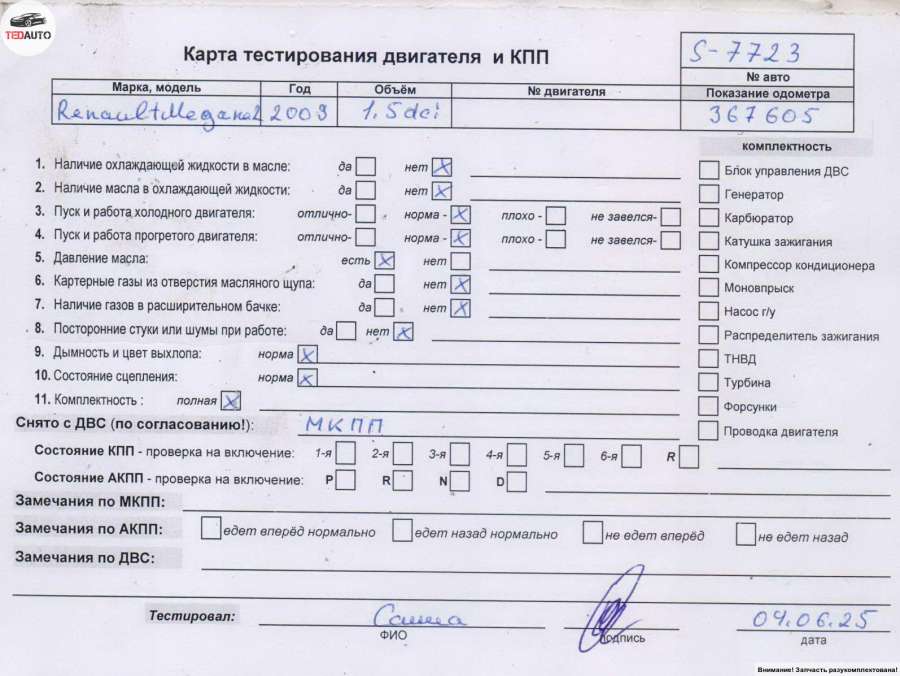 TEDAUTO
Карта тестирования двигателя и КПП
S-7723
№ авто
Марка, модель Год Объём № двигателя Показание одометра
Renault Megane 2 2009 1.5 dci 367605
комплектность
1. Наличие охлаждающей жидкости в масле: да нет X
2. Наличие масла в охлаждающей жидкости: да нет X
3. Пуск и работа холодного двигателя: отлично- норма - X плохо - не завелся-
4. Пуск и работа прогретого двигателя: отлично- норма - X плохо - не завелся-
5. Давление масла: есть X нет
6. Картерные газы из отверстия масляного щупа: да нет X
7. Наличие газов в расширительном бачке: да нет X
8. Посторонние стуки или шумы при работе: да нет X
9. Дымность и цвет выхлопа: норма X
10. Состояние сцепления: норма X
11. Комплектность : полная X
Блок управления ДВС
Генератор
Карбюратор
Катушка зажигания
Компрессор кондиционера
Моновпрыск
Насос г/у
Распределитель зажигания
ТНВД
Турбина
Форсунки
Проводка двигателя
Снято с ДВС (по согласованию!): МКПП
Состояние КПП - проверка на включение: 1-я 2-я 3-я 4-я 5-я 6-я R
Состояние АКПП - проверка на включение: P R N D
Замечания по МКПП:
Замечания по АКПП: едет вперёд нормально едет назад нормально не едет вперёд не едет назад
Замечания по ДВС:
Тестировал: Саша 04.06.25
ФИО подпись дата
Внимание! Запчасть разукомплектована!